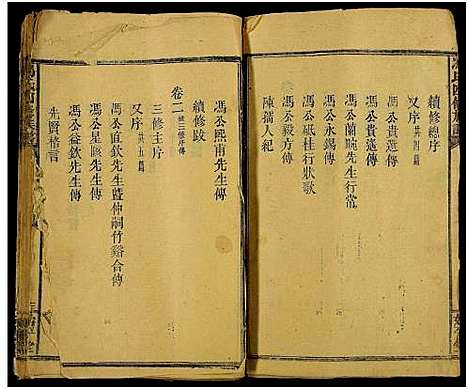 續修總序
又序 共四篇
馮公貴選傳
馮公貴遜傳
馮公蘭畹先生行常
馮公永錫傳
馮公砥柱行狀歌
馮公毅方傳
陳孺人紀
馮公熙甫先生傳
續修跋
卷二
三修主片
又序 共五篇
馮公直欽先生暨仲嗣竹谿合傳
馮公星陔先生傳
馮公益欽先生傳
先賢格言